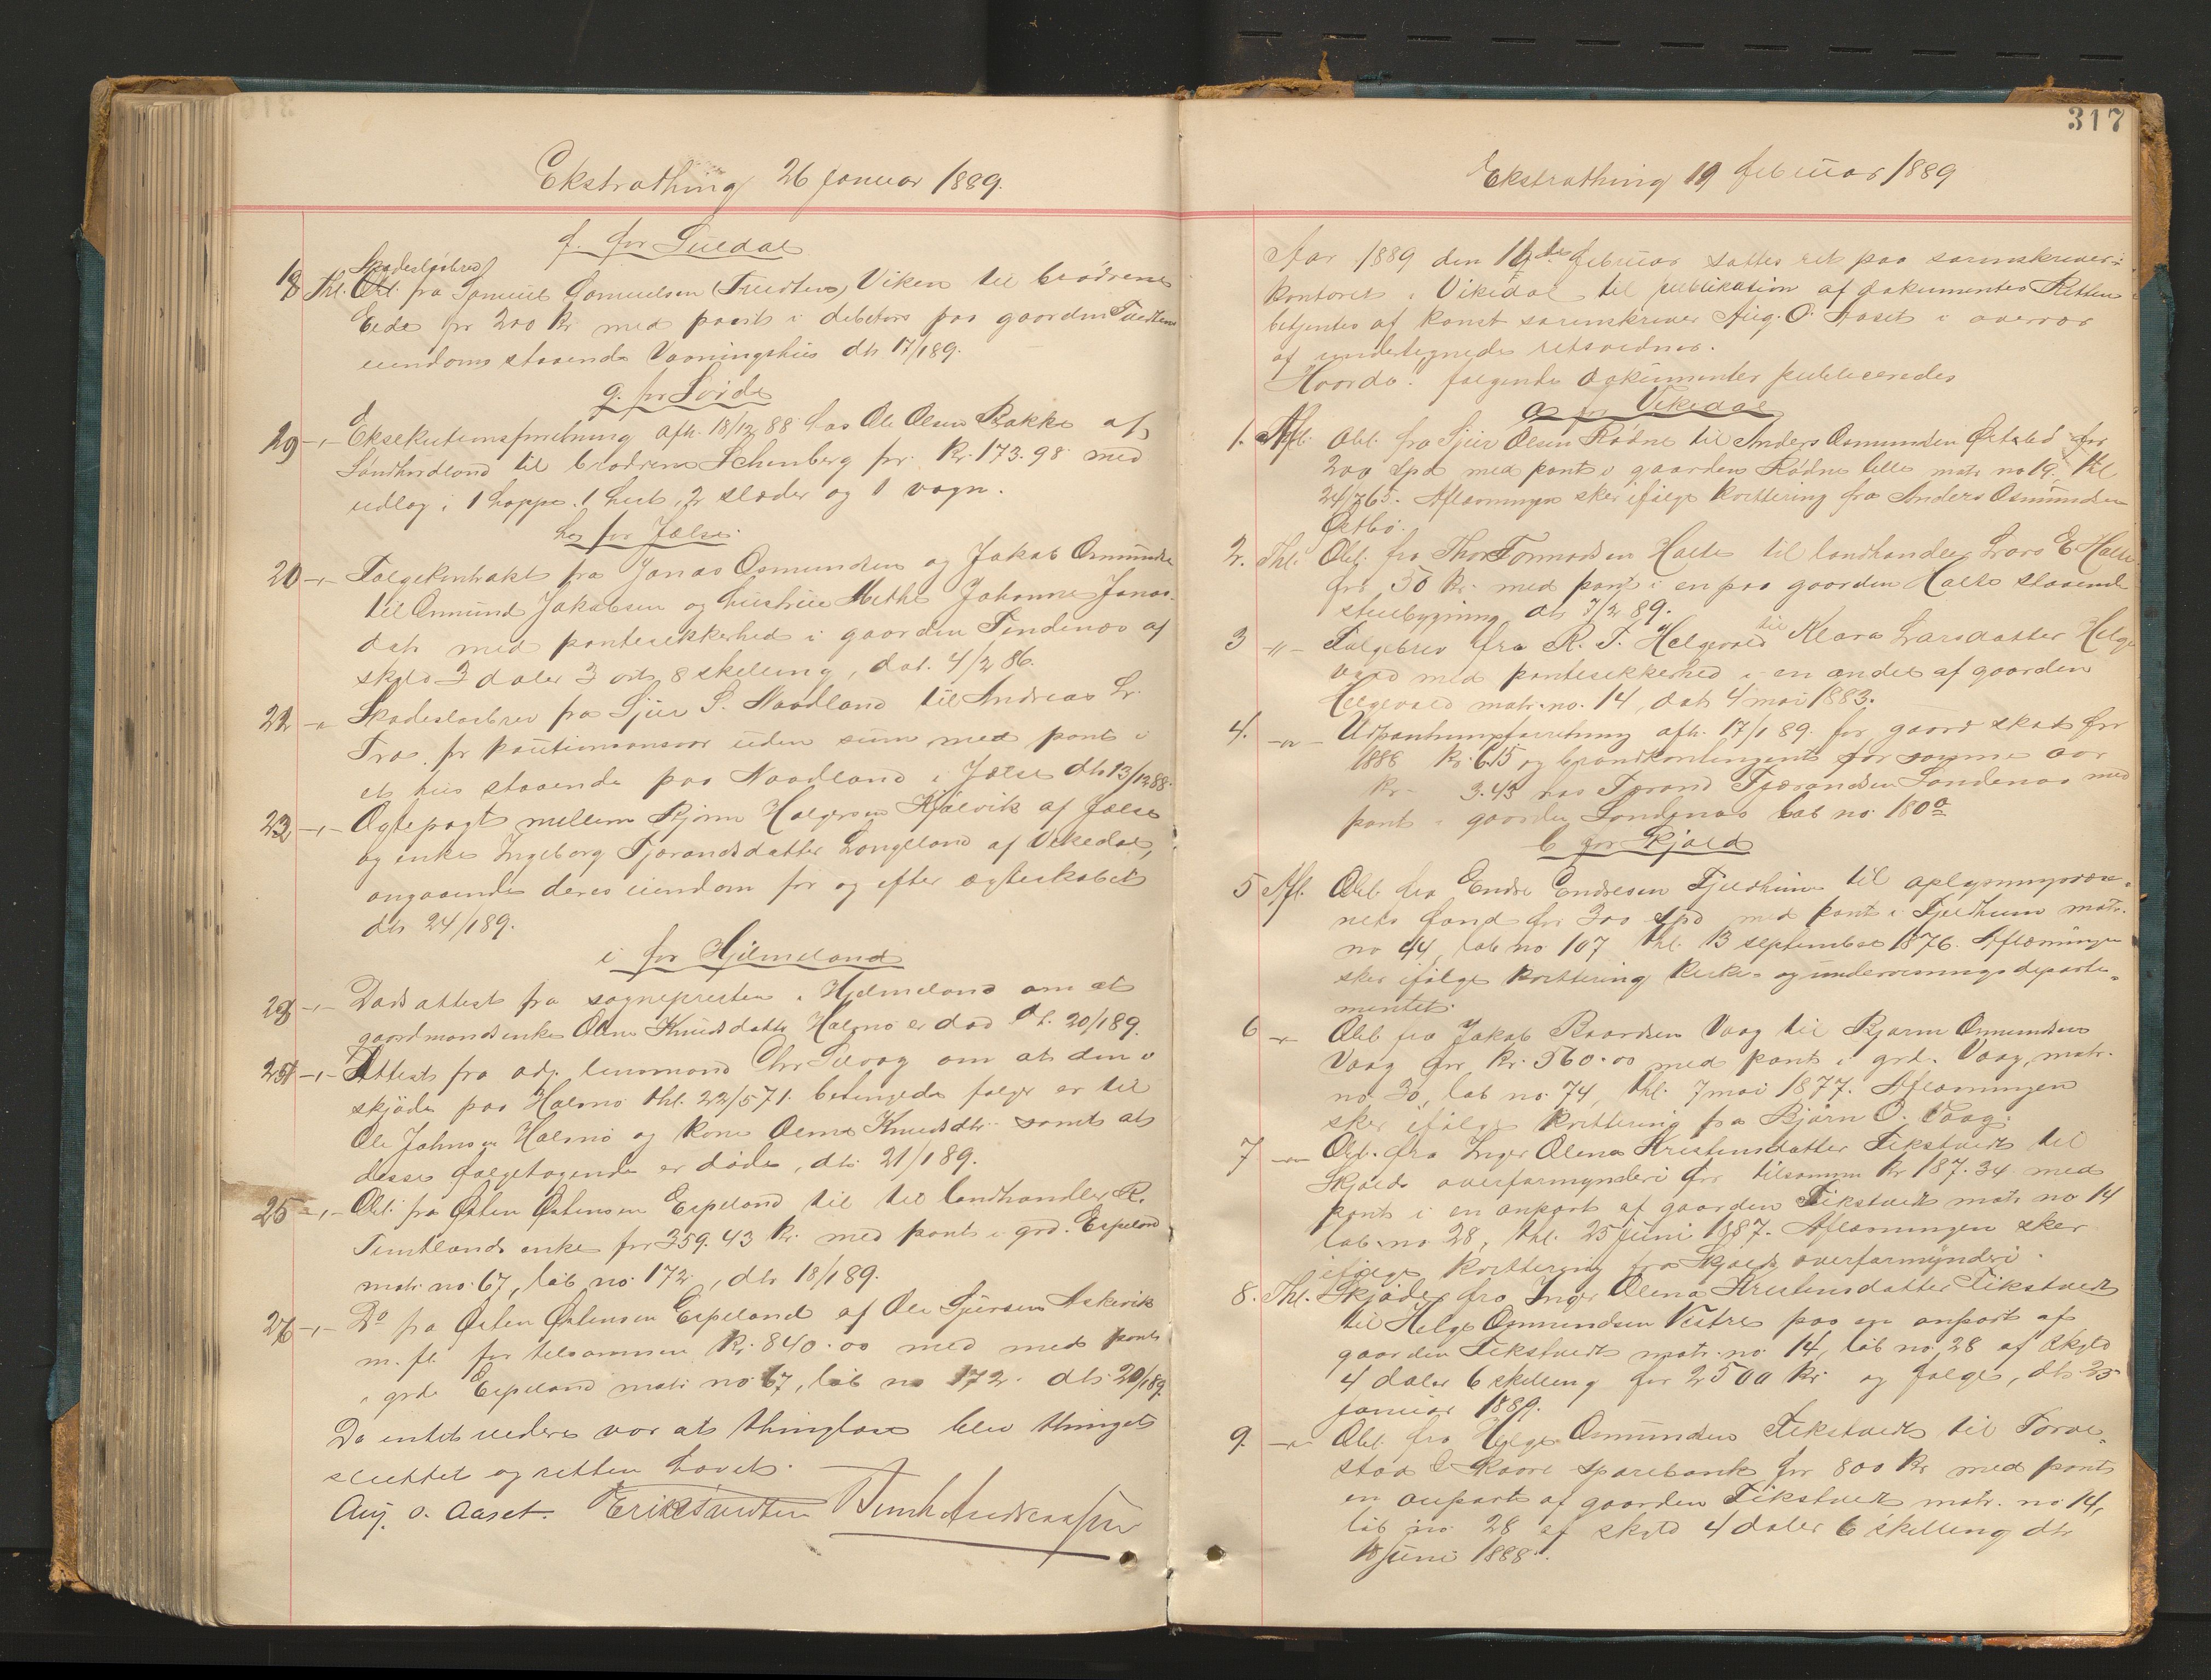 Ekstrathing 26 januar 1889.
f. for Suldal
Skadesløsbrev
18 Thl. Obl. fra Samuel Samuelsen (Tvedten) Viken til brødrene
Eide for 200 Kr. med pant i debitors paa gaarden Tvedtens
eiendom staaende Vaaningshus dt. 17/1 89.
g. for Søvde
19 -,,- Eksekutionsforretning afh. 18/12 88 hos Ole Olsen Bakke af
Søndhordland til brødrene Schenberg for Kr. 173.98 med
udlæg i 1 hoppe, 1 hest, 2 slæder og 1 vogn.
h. for Jælse
20 -,,- Følgekontrakt fra Jonas Osmundsen og Jakob Osmundsen
til Osmund Jakobsen og hustrue Methe Johanne Jonas-
datr. med pantesikkerhed i gaarden Tendenæs af
skyld 3 daler 3 ort 8 skilling, dat. 4/2 86.
21 -,,- Skadesløsbrev fra Sjur S. Naadland til Andreas Lr.
Træ for kautionsansvar uden sum med pant i
et hus staaende paa Naadland i Jælse dt. 13/12 88.
22 -,,- Ægtepagt mellem Bjørn Halgersen Hjælvik af Jælse
og enke Ingeborg Tjærandsdatter Langeland af Vikedal,
angaaende deres eiendom før og efter ægteskabet
dt. 24/1 89.
i for Hjelmeland
23 -,,- Dødsattest fra sognepresten i Hjelmeland om at
gaardmandsenke Olene Knudsdatter Halsnø er død dt. 20/1 89.
24 -,,- Attest fra adj. lensmand Chr. Sevaag om at den i
skjøde paa Halsnø thl. 22/5 71 betingede følge er til
Ole Johnsen Halsnø og kone Olene Knudsdtr. samt at
disse følgetagende er døde, dt. 21/1 89.
25 -,,- Obl. fra Østen Østensen Espeland til til landhandler R.
Timtlands enke for 359.43 Kr. med pant i grd. Espeland
matr. no. 67, løb no. 172, dt. 18/1 89.
26 -,,- Do fra Østen Østensen Espeland af Ole Sjursen Askevik
m. fl. for tilsammen Kr. 840.00 med med pant
i grd. Espeland matr. no. 67, løb no 172. dt. 20/1 89
Da intet videre var at thinglæse blev thinget
sluttet og retten hævet.
Aug. O. Aaset. Erik Tvedten
317
Ekstrathing 19 februar 1889
Aar 1889 den 19de februar sattes ret paa sorenskriver-
kontoret i Vikedal til publikation af dokumenter. Retten
betjentes af konst. sorenskriver Aug. O. Aaset i overvær
af undertegnede retsvidner.
Hvorda: følgende dokumenter publiceredes
a for Vikedal
1. Afl. Obl. fra Sjur Olsen Rødne til Anders Osmundsen Østabø for
200 Spd med pant i gaarden Rødne lille matr. no 19, thl.
24/7 65. Aflæsningen sker ifølge kvittering fra Anders Osmundsen
Østbø.
2. Thl. Obl. fra Thor Tormodsen Halle til landhandler Lars E. Halle
for 50 Kr. med pant i en paa gaarden Halle staaende
stuebygning dt. 7/2 89.
3 -,,- Følgebrev fra R. T. Helgevold til Klara Larsdatter Helge-
vold med pantesikkerhed i en andel af gaarden
Helgevold matr. no. 14, dat. 4 mai 1883.
4. -,,- Udpantningsforretning afh. 17/1 89. for gaard skat for
1888 Kr. 6.15 og brandkontingent for samme aar
Kr. 3.43 hos Tjærand Tjærandsen Søndenaa med
pant i gaarden Søndenaa løb no 180a
b for Skjold
5 Afl. Obl. fra Endre Endresen Fjeldheim til oplysningsvæse-
nets fond for 300 Spd med pant i Fjeldheim matr.
no 44, løb no 107 thl. 13 september 1876. Aflæsningen
sker ifølge kvittering kirke- og undervisningsdeparte-
mentet.
6 -,,- Obl. fra Jakob Baardsen Vaag til Bjørn Osmundsen
Vaag for Kr. 560.00 med pant i grd. Vaag, matr.
no. 30, løb no. 74, thl. 7 mai 1877. Aflæsningen
sker ifølge kvittering fra Bjørn O. Vaag.
7 -,,- Obl. fra Inger Olena Kristensdatter Tikstvedt til
Skjolds overformynderi for tilsammen Kr. 187.34 med
pant i en anpart af gaarden Tikstvedt matr. no 14
løb no 28, thl. 25 juni 1887. Aflæsningen sker
ifølge kvittering fra Skjolds overformynderi.
8. Thl. Skjøde fra Inger Olena Kristensdatter Tikstvedt
til Helge Osmundsen Vestre paa en anpart af
gaarden Tikstvedt matr. no. 14, løb no. 28 af skyld
4 daler 6 skilling for 2500 Kr. og følge, dt. 25
januar 1889.
9. -,,- Obl. fra Helge Osmundsen Tikstvedt til Torve-
stad & Skaare sparebank for 800 Kr. med pant
en anpart af gaarden Tikstvedt matr. no 14,
løb no. 28 af skyld 4 daler 6 skilling dt.
18 juni 1888.